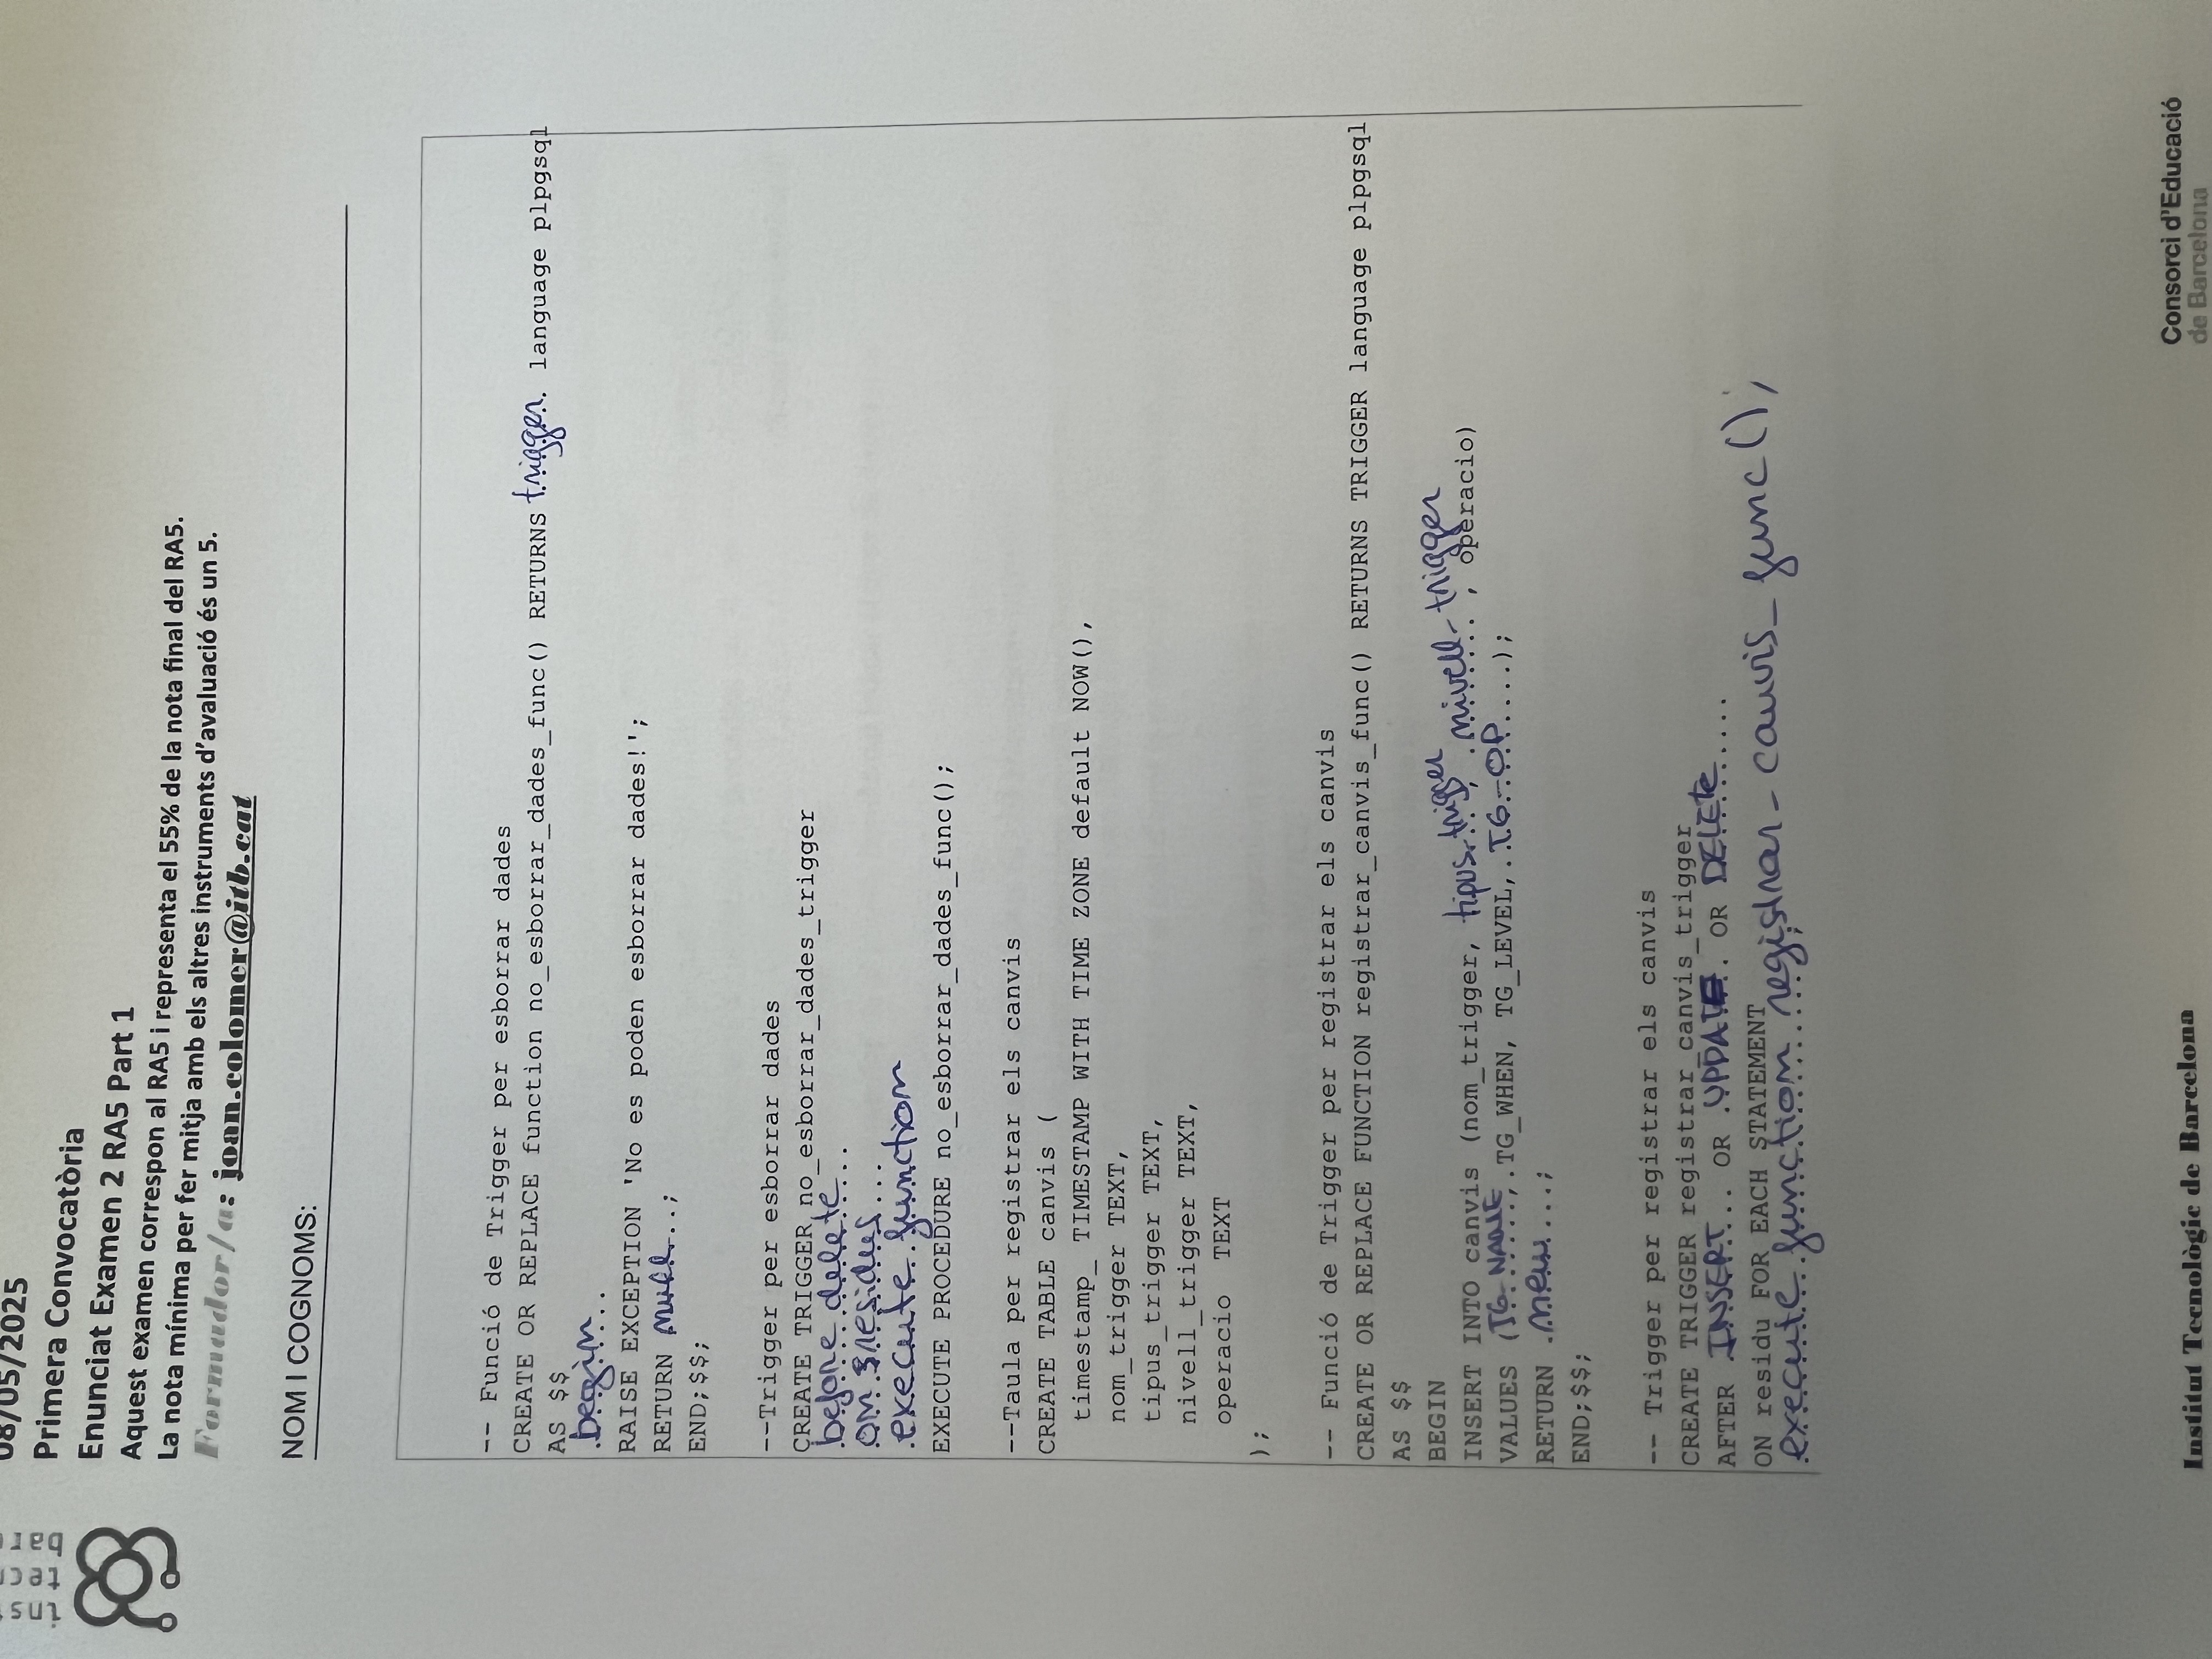 08/05/2025
Primera Convocatòria
Enunciat Examen 2 RA5 Part 1
Aquest examen correspon al RA5 i representa el 55% de la nota final del RA5.
La nota mínima per fer mitja amb els altres instruments d'avaluació és un 5.
Formador/a: joan.colomer@itb.cat
NOM I COGNOMS:
-- Funció de Trigger per esborrar dades
CREATE OR REPLACE function no_esborrar_dades_func() RETURNS trigger. language plpgsql
AS $$
begin
RAISE EXCEPTION 'No es poden esborrar dades!';
RETURN null..;
END;$$;
--Trigger per esborrar dades
CREATE TRIGGER no_esborrar_dades_trigger
before delete
on residus...
execute function
EXECUTE PROCEDURE no_esborrar_dades_func();
--Taula per registrar els canvis
CREATE TABLE canvis (
timestamp_ TIMESTAMP WITH TIME ZONE default NOW(),
nom_trigger TEXT,
tipus_trigger TEXT,
nivell_trigger TEXT,
operacio TEXT
);
-- Funció de Trigger per registrar els canvis
CREATE OR REPLACE FUNCTION registrar_canvis_func() RETURNS TRIGGER language plpgsql
AS $$
BEGIN
INSERT INTO canvis (nom_trigger, tipus_trigger, nivell_trigger, operacio)
VALUES (TG_NAME, TG_WHEN, TG_LEVEL, TG_OP....);
RETURN new....;
END;$$;
-- Trigger per registrar els canvis
CREATE TRIGGER registrar_canvis_trigger
AFTER INSERT... OR UPDATE. OR DELETe.....
ON residu FOR EACH STATEMENT
execute function registrar_canvis_func();
Institut Tecnològic de Barcelona
Consorci d'Educació
de Barcelona